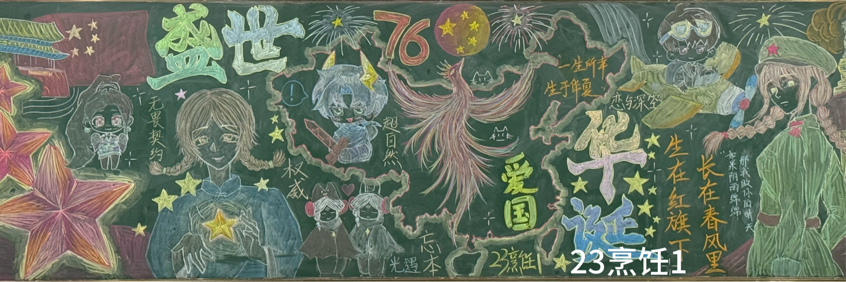 盛世
76
华诞
一生所幸
生于华夏
无畏契约
超自然
权威
恋与深空
爱国
光遇
忘本
23烹饪1
生在红旗下
长在春风里
那我做你的晴天
如果阴雨绵绵
23烹饪1